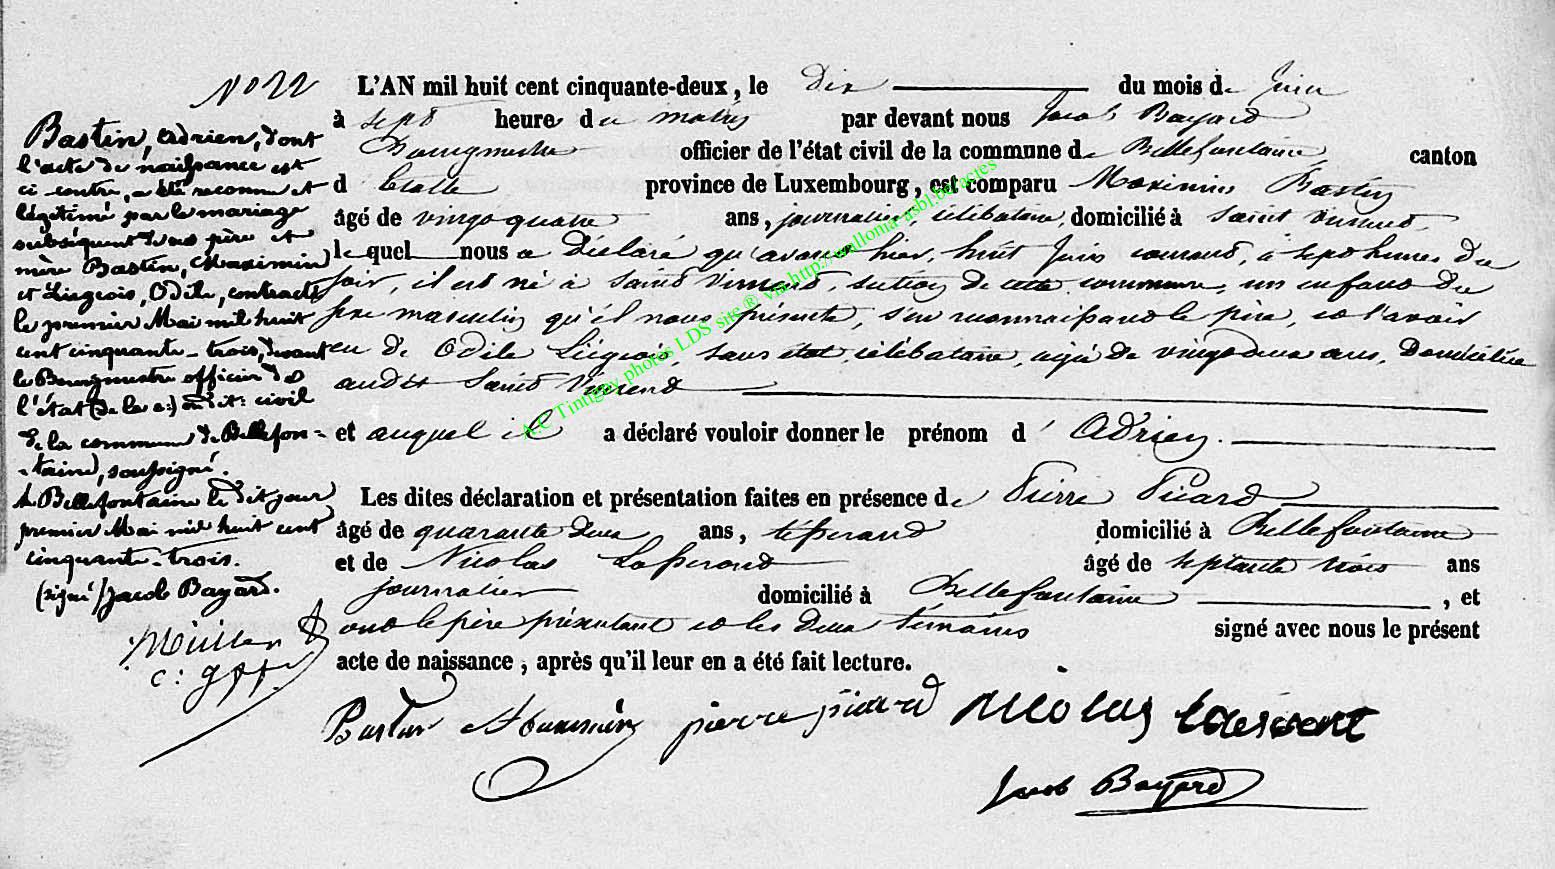 N° 22
Bastin, Adrien, dont
l'acte de naissance est
ci-contre, a été reconnu et
légitimé par le mariage
subséquent de ses père et
mère Bastin, Maximin
et Liégeois, Odile, contracté
le premier Mai mil huit
cent cinquante-trois, devant
le Bourgmestre officier de
l'état (de la c:) dudit: civil
de la commune de Bellefon=
-taine, soussigné.
A Bellefontaine le dit jour
premier Mai mil huit cent
cinquante-trois.
(signé) Jacob Bayard.
Müller
c: gff.
L'AN mil huit cent cinquante-deux, le dix du mois de Juin
à sept heures du matin par devant nous Jacob Bayard
Bourgmestre officier de l'état civil de la commune de Bellefontaine, canton
d'Etalle province de Luxembourg, est comparu Maximin Bastin
âgé de vingt quatre ans, journalier, célibataire, domicilié à Saint Vincent,
lequel nous a déclaré qu'avant hier, huit Juin courant, à sept heures du
soir, il est né à Saint Vincent, section de cette commune, un enfant du
sexe masculin qu'il nous présente, s'en reconnaissant le père, et l'avoir
eu de Odile Liégeois, sans état, célibataire, agée de vingt deux ans, Domiciliée
audit Saint Vincent
et auquel il a déclaré vouloir donner le prénom d'Adrien.
Les dites déclaration et présentation faites en présence de Pierre Picard
âgé de quarante deux ans, tisserand domicilié à Bellefontaine
et de Nicolas Lasserand âgé de septante trois ans
journalier domicilié à Bellefontaine, et
ont le père présentant et les deux témoins signé avec nous le présent
acte de naissance, après qu'il leur en a été fait lecture.
Bastin Maximin pierre picard Nicolas
Jacob Bayard
A.C Tintigny photos LDS site ® via http://wallonia-asbl.be/actes